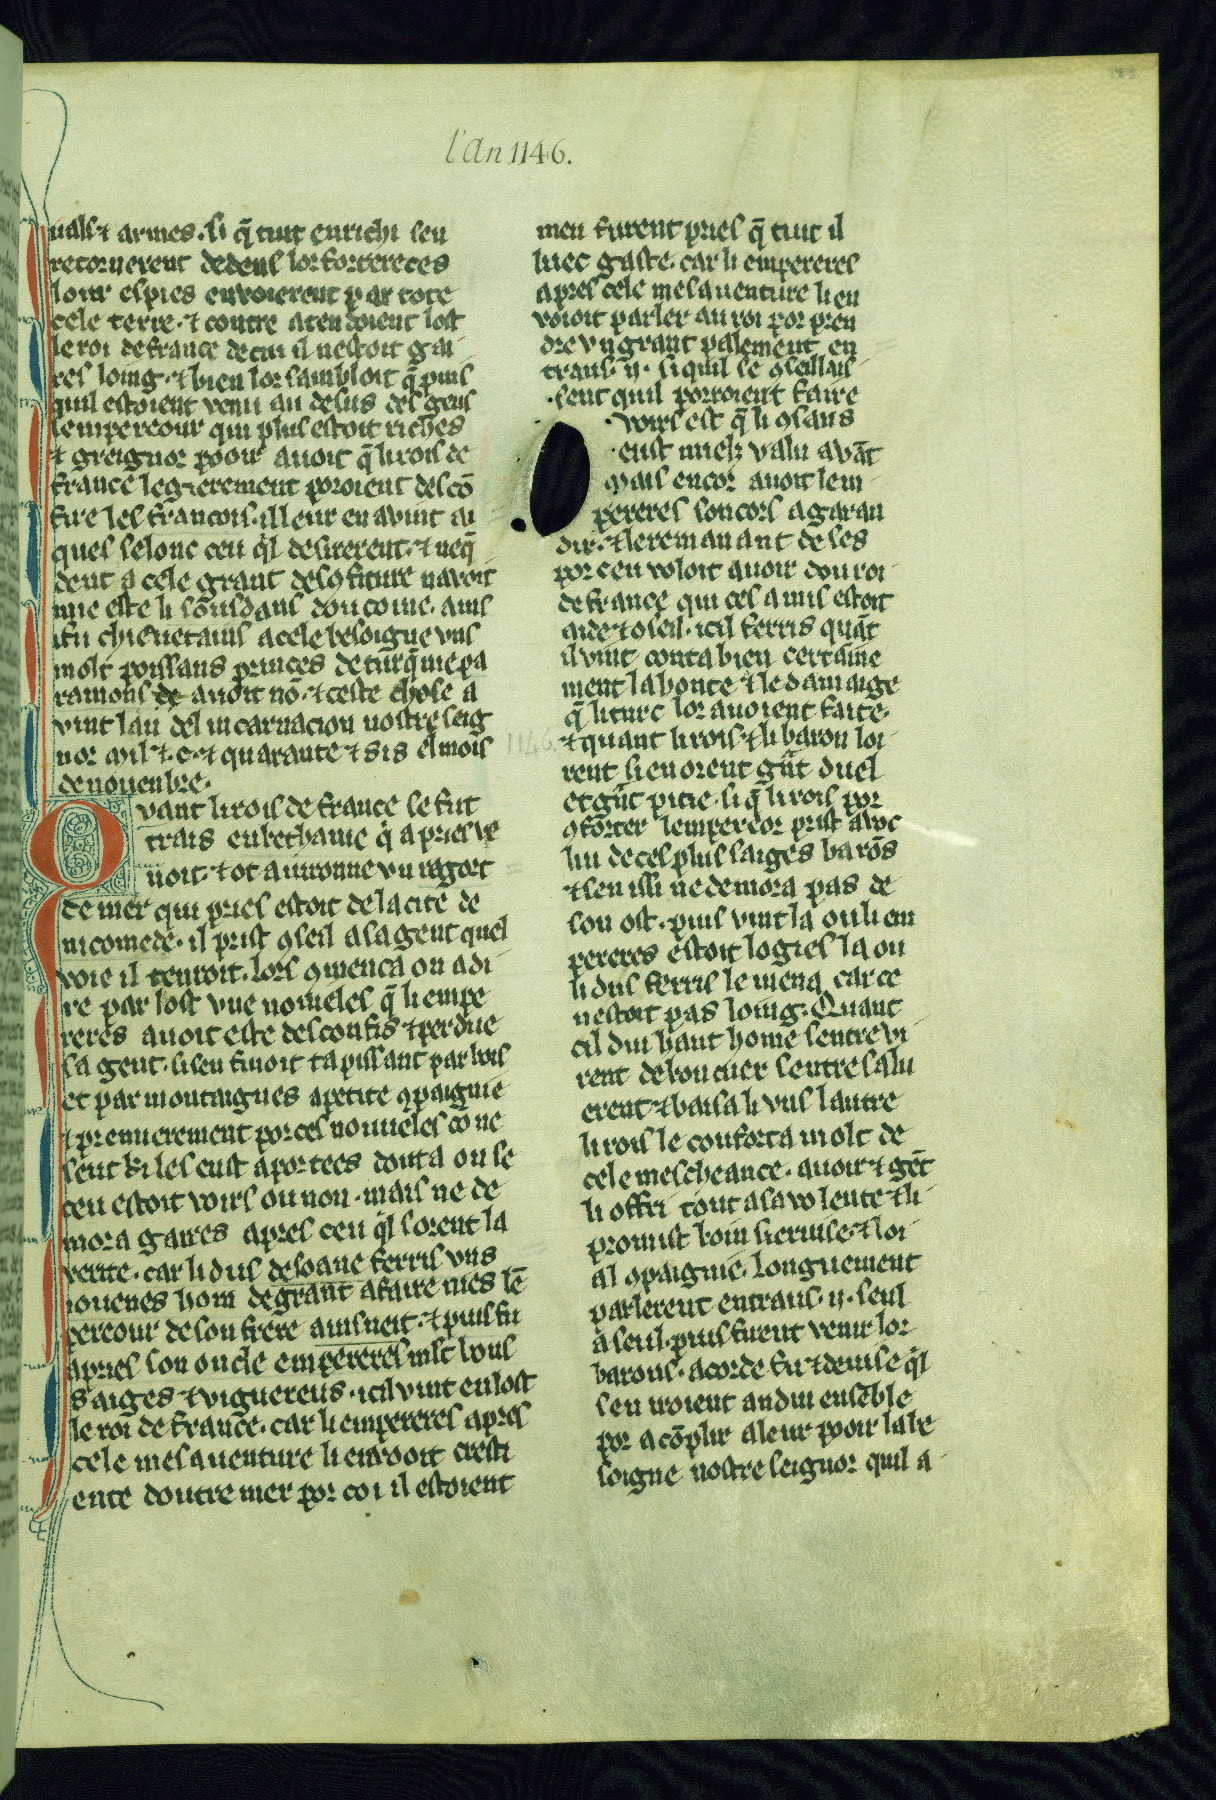 l'an 1146.
uals ⁊ armes. si q̄ tuit enrichi sen
retornerent dedens lor fortereces
lour espies envoierent par tote
cele terre. ⁊ contre atendoient lost
le roi de france de cui il nestoit gai
res loing. ⁊ bien lor sambloit q̄ puis
quil estoient venu au desus des gens
lempereour qui plus estoit riches
⁊ greignor pooir avoit q̄ li rois de
france legierement poroient descō
fire les francois. il leur en avint au
ques selonc ceu q̓l desirerent. ⁊ neq̄
dent a cele grant desꝯfiture navoit
mie este li soudans dou coine. ains
ifu chieuetains a cele besoigne vns
molt poissans princes de turq̄nie pa
ramons de avoit nō. ⁊ ceste chose a
vint lan del incarnacion nostre seig
nor mil. ⁊. c. ⁊ quarante ⁊ sis el mois
de nouenbre.
Quant li rois de france se fut
trais en bethanie q̓ apries ve
noit. ⁊ ot auironne vn regort
de mer qui pries estoit de la cite de
nicomede. il prist ꝯseil a sa gent quel
voie il tenroit. lors ꝯmenca on a di
re par lost vne noueles q̄ li empe
reres avoit este desconfis ⁊ perdue
sa gent. si sen fuioit tapissant par bois
et par montaignes a petite ꝯpaignie
⁊ premierement por ces nouueles co ne
seut ki les eust aportees douta on se
ceu estoit voirs ou non. mais ne de
mora gaires apres ceu q̓l sorent la
verite. car li dus de soaue ferris vns
iouenes hom de grant afaire nies lē
pereour de son frere ainsneit. ⁊ puis fu
apries son oncle empereres mlt bons
saiges ⁊ viguereus. icil vint en lost
le roi de france. car li empereres apres
cele mesauenture li envooit cresti
ente doutre mer por coi il estoient
meu furent pries q̄ tuit il
luec gaste. car li empereres
apres cele mesauenture li en
voioit parler au roi por pren
dre vn grant palement en
traus. ij. si quil se ꝯseillais
sent quil porroient faire
voirs est q̄ li ꝯsaus
eust mielz valu avāt
mais encor avoit lem
pereres son cors a garan
dir. ⁊ le remanant de ses
por ceu voloit avoir dou roi
de france qui ces amis estoit
aide ⁊ ꝯseil. icil ferris quāt
il vint conta bien certaine
ment la honte ⁊ le damaige
q̄ li turc lor avoient faite.
⁊ quant li rois. ⁊ li baron loi
rent si en orent gͣnt duel
et gͣnt pitie. si q̄ li rois por
ꝯforter lempereor prist avoc
lui de ces plus saiges barōs
⁊ sen issi ne demora pas de
son ost. puis vint la ou li em
pereres estoit logies la ou
li dus ferris le mena car ce
nestoit pas loing. Quant
cil dui haut home sentrevi
rent de bon cuer sentresalu
erent ⁊ baisa li vns lautre
li rois le conforta molt de
cele mescheance. avoir ⁊ gēt
li offri tout a sa volente ⁊ li
promist boin seruise. ⁊ loi
al ꝯpaignie. Longuement
parlerent entraus. ij. seul
a seul. puis firent venir lor
barons. acorde fu ⁊ deuise q̓l
sen iroient andui ensēble
por acōplir a leur pooir la be
soigne nostre seignor quil a